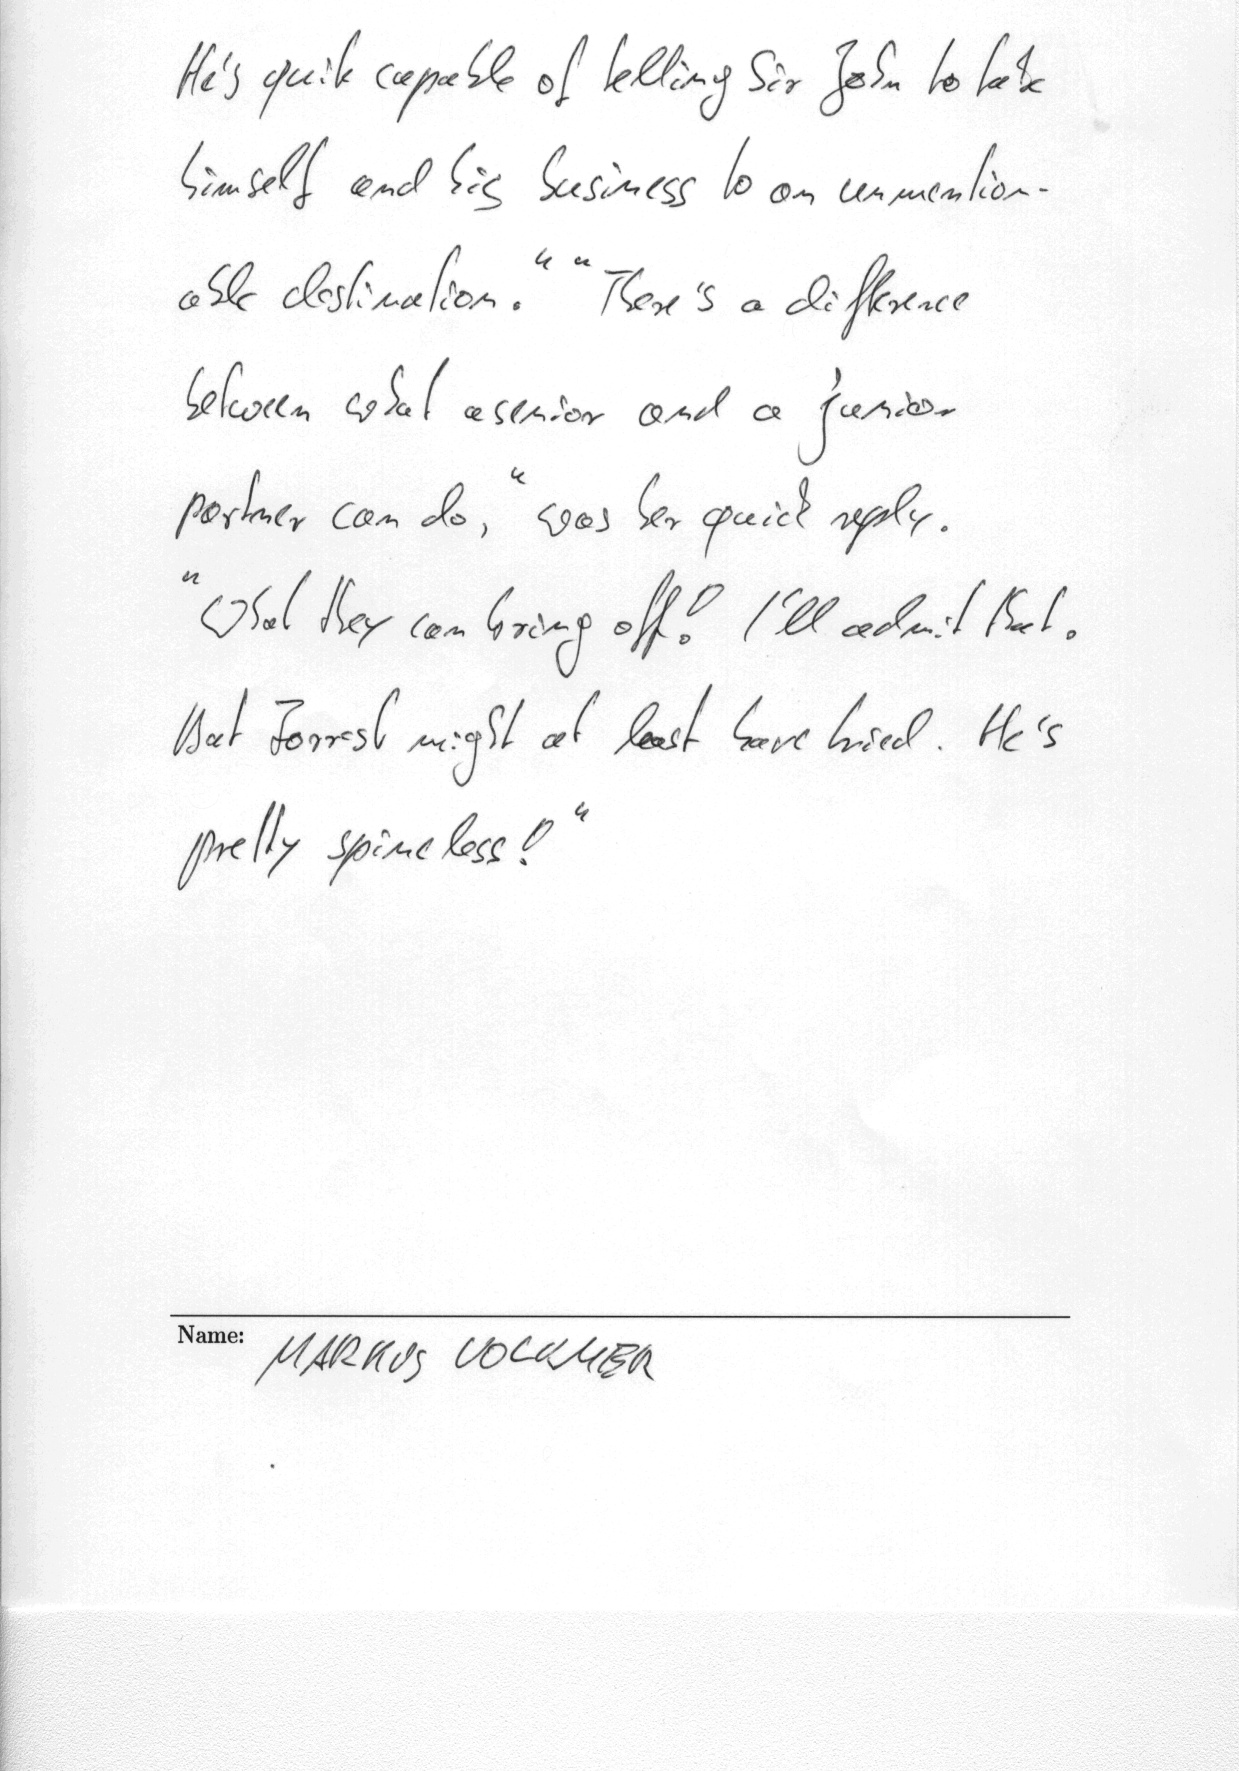 He's quite capable of telling Sir John to take
himself and his business to an unmention-
able destination." "There's a difference
between what a senior and a junior
partner can do," was her quick reply.
"What they can bring off! I'll admit that.
But Forrest might at least have tried. He's
pretty spineless!"
Name: MARKUS VOCKMER